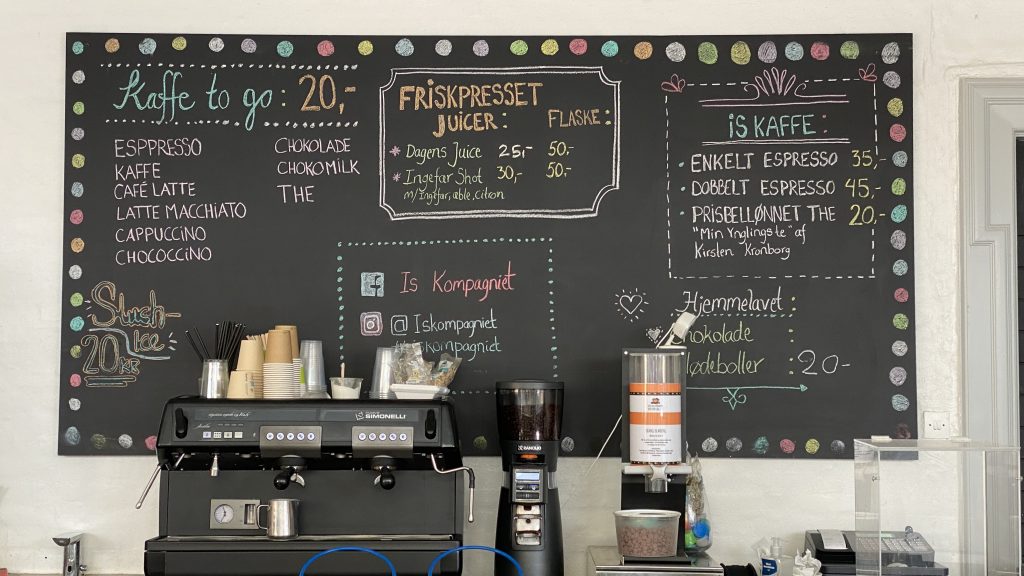 Kaffe to go: 20,-
ESPPRESSO
KAFFE
CAFÉ LATTE
LATTE MACCHIATO
CAPPUCCINO
CHOCOCCINO
CHOKOLADE
CHOKOMILK
THE
Slush-
Ice
20kr
FRISKPRESSET
JUICER: FLASKE:
* Dagens Juice 25,- 50.-
* Ingefær Shot 30,- 50.-
m/Ingefær, æble, citron
Is Kompagniet
@ Iskompagniet
iskompagniet
IS KAFFE:
• ENKELT ESPRESSO 35,-
• DOBBELT ESPRESSO 45,-
• PRISBELLØNNET THE 20,-
"Min Ynglingste" af
Kirsten Kronborg
Hjemmelavet:
hokolade
lødeboller : 20-
SIMONELLI